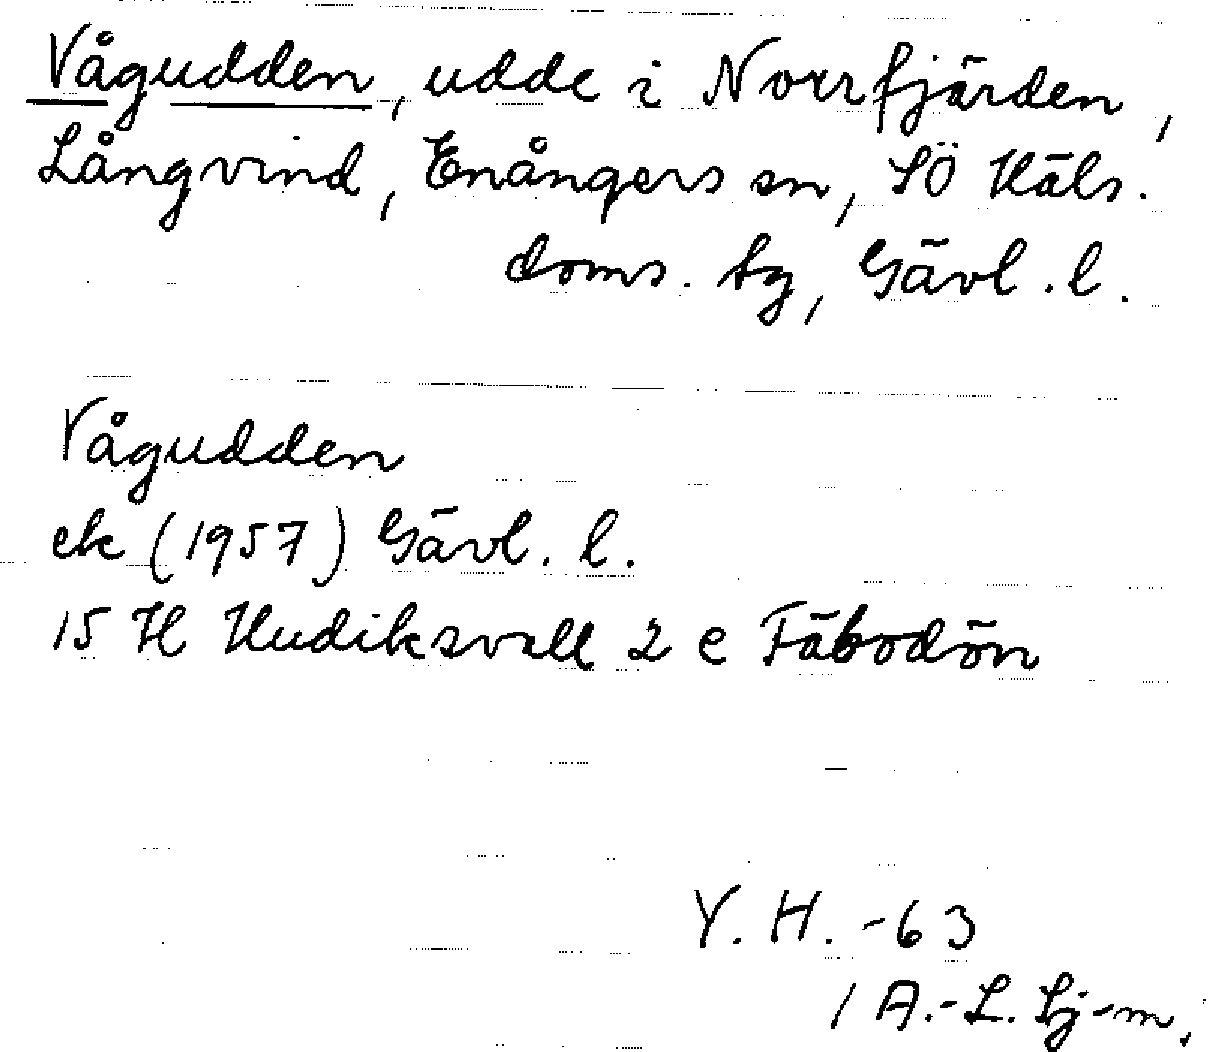 Vågudden, udde i Norrfjärden,
Långvind, Enångers sn, SÖ Häls.
doms. tg, Gävl. l.
Vågudden
ek (1957) Gävl. l.
15 H Hudiksvall 2 e Fäbodön
Y. H. -63
/ A.-L. Lj-m.